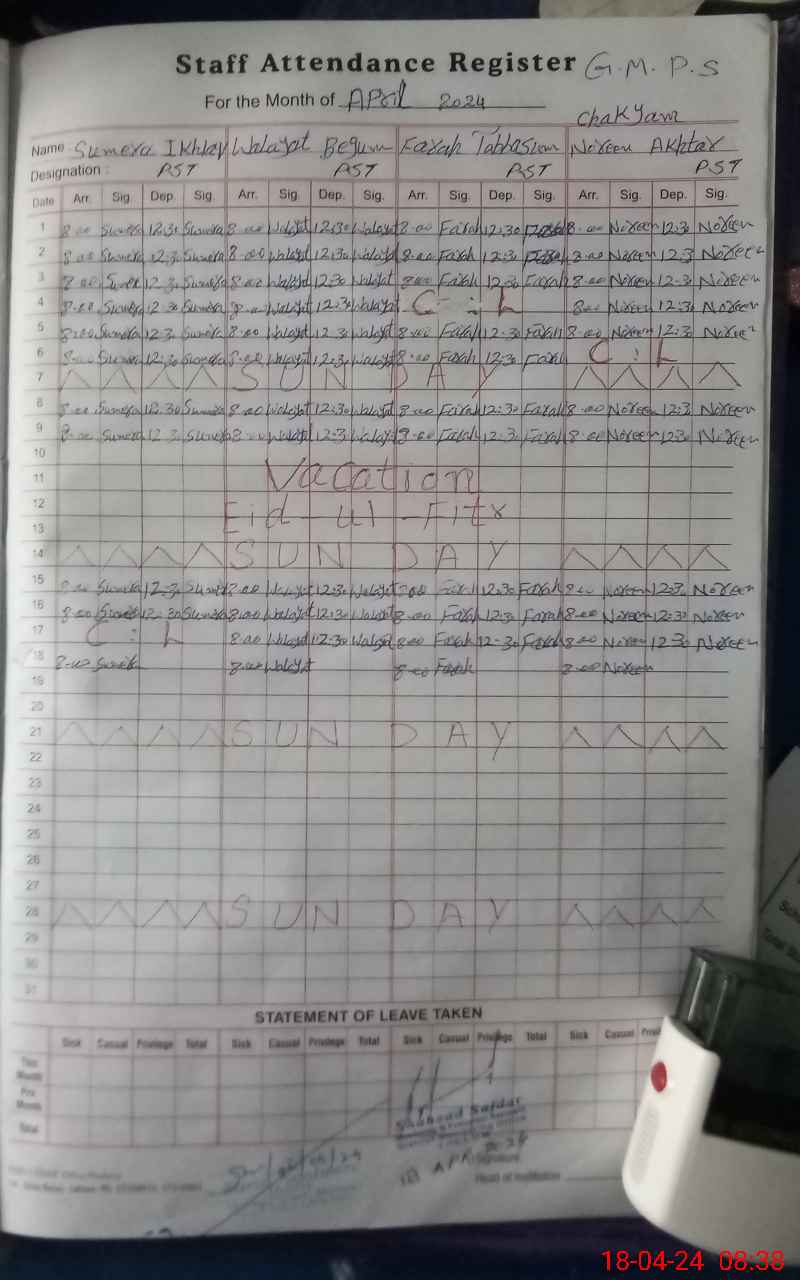 Staff Attendance Register G.M.P.S
For the Month of April 2024
Chakyam
Name Sumera Ikhlaq Walayat Begum Farah Tabbasum Noreen Akhtar
Designation : PST PST PST PST
Date Arr. Sig. Dep. Sig. Arr. Sig. Dep. Sig. Arr. Sig. Dep. Sig. Arr. Sig. Dep. Sig.
1 8-00 Sumera 12:30 Sumera 8-00 Walayt 12:30 Walayt 8-00 Farah 12:30 Farah 8-00 Noreen 12:30 Noreen
2 8-00 Sumera 12:30 Sumera 8-00 Walayt 12:30 Walayt 8-00 Farah 12:30 Farah 8-00 Noreen 12:3 Noreen
3 8-00 Sumera 12:30 Sumera 8-00 Walayt 12:30 Walayt 8-00 Farah 12:30 Farah 8-00 Noreen 12-30 Noreen
4 8-00 Sumera 12:30 Sumera 8-00 Walayt 12:30 Walayt C : L 8-00 Noreen 12:30 Noreen
5 8-00 Sumera 12:3 Sumera 8-00 Walayt 12:30 Walayt 8-00 Farah 12-30 Farah 8-00 Noreen 12:3 Noreen
6 8-00 Sumera 12:30 Sumera 8-00 Walayt 12:30 Walayt 8-00 Farah 12:30 Farah C : L
7 SUN DAY
8 8-00 Sumera 12:30 Sumera 8-00 Walayt 12:30 Walayt 8-00 Farah 12:30 Farah 8-00 Noreen 12:3 Noreen
9 8-00 Sumera 12:3 Sumera 8-00 Walayt 12:3 Walayt 8-00 Farah 12:30 Farah 8-00 Noreen 12:30 Noreen
10
11 Vacation
12 Eid-ul-Fitr
13
14 SUN DAY
15 8-00 Sumera 12:30 Sumera 8-00 Walayt 12:30 Walayt 8-00 Farah 12:30 Farah 8-00 Noreen 12:30 Noreen
16 8-00 Sumera 12:30 Sumera 8-00 Walayt 12:30 Walayt 8-00 Farah 12:30 Farah 8-00 Noreen 12:30 Noreen
17 C : L 8-00 Walayt 12:30 Walayt 8-00 Farah 12-30 Farah 8-00 Noreen 12:30 Noreen
18 8-00 Sumera 8-00 Walayt 8-00 Farah 8-00 Noreen
19
20
21 SUN DAY
22
23
24
25
26
27
28 SUN DAY
29
30
31
STATEMENT OF LEAVE TAKEN
Sick Casual Privilege Total Sick Casual Privilege Total Sick Casual Privilege Total Sick Casual
This Month
Pre Month
Total
Shahzad Safdar
18 APR
Signature
Head of Institution
18-04-24 08:38